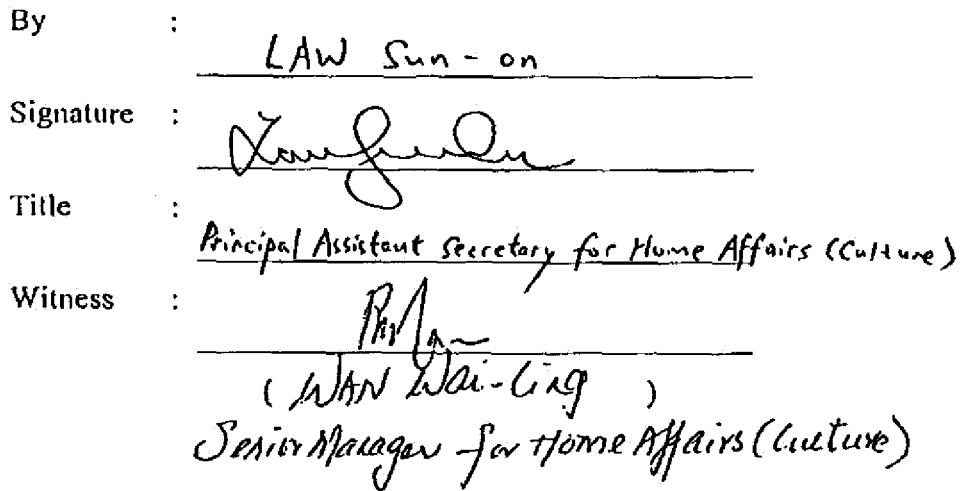 By : LAW Sun-on
Signature :
Title : Principal Assistant Secretary for Home Affairs (Culture)
Witness :
( WAN Wai-Ling )
Senior Manager for Home Affairs (Culture)